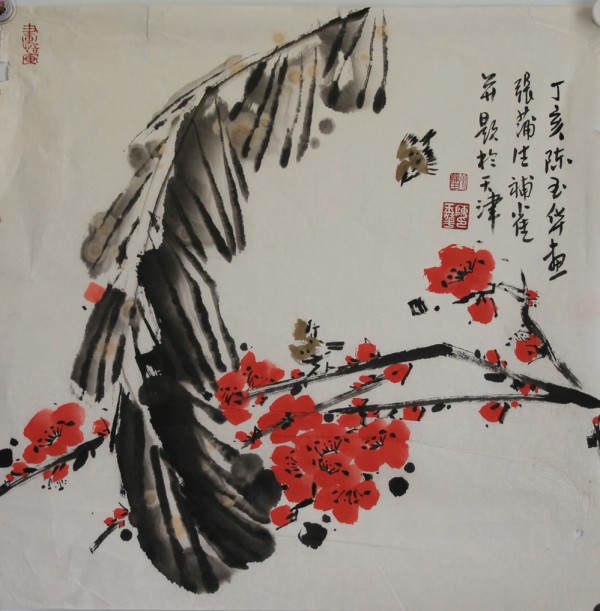 丁亥陈玉华画
張蒲生補雀
并題於天津